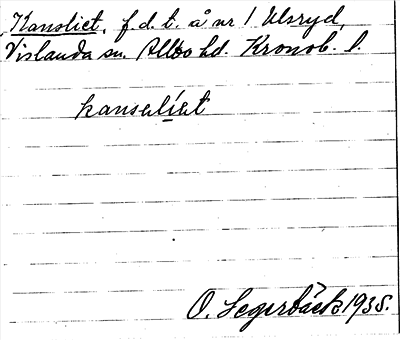 Kansliet, f.d. t. å nr 1 Ulsryd,
Vislanda sn. Allbo hd. Kronob. l.
kanseliet
O. Segerbäck 1935.